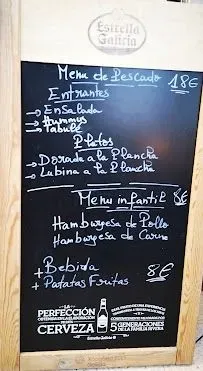 Estrella
Galicia
Menu de Pescado 18€
Entrantes
→ Ensalada
→ Hummus
→ Tabulé
Platos
→ Dorada a la Plancha
→ Lubina a la Plancha
Menu infantil
Hamburgesa de Pollo
Hamburgesa de Carne
+ Bebida 8€
+ Patatas Fruitas
LA
PERFECCIÓN
CERVEZA
5 GENERACIONES
DE LA FAMILIA RIVERA
Estrella Galicia